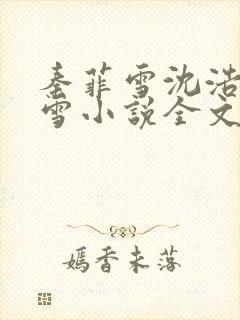 秦菲雪沈浩
雪小说全文
嫣香未落